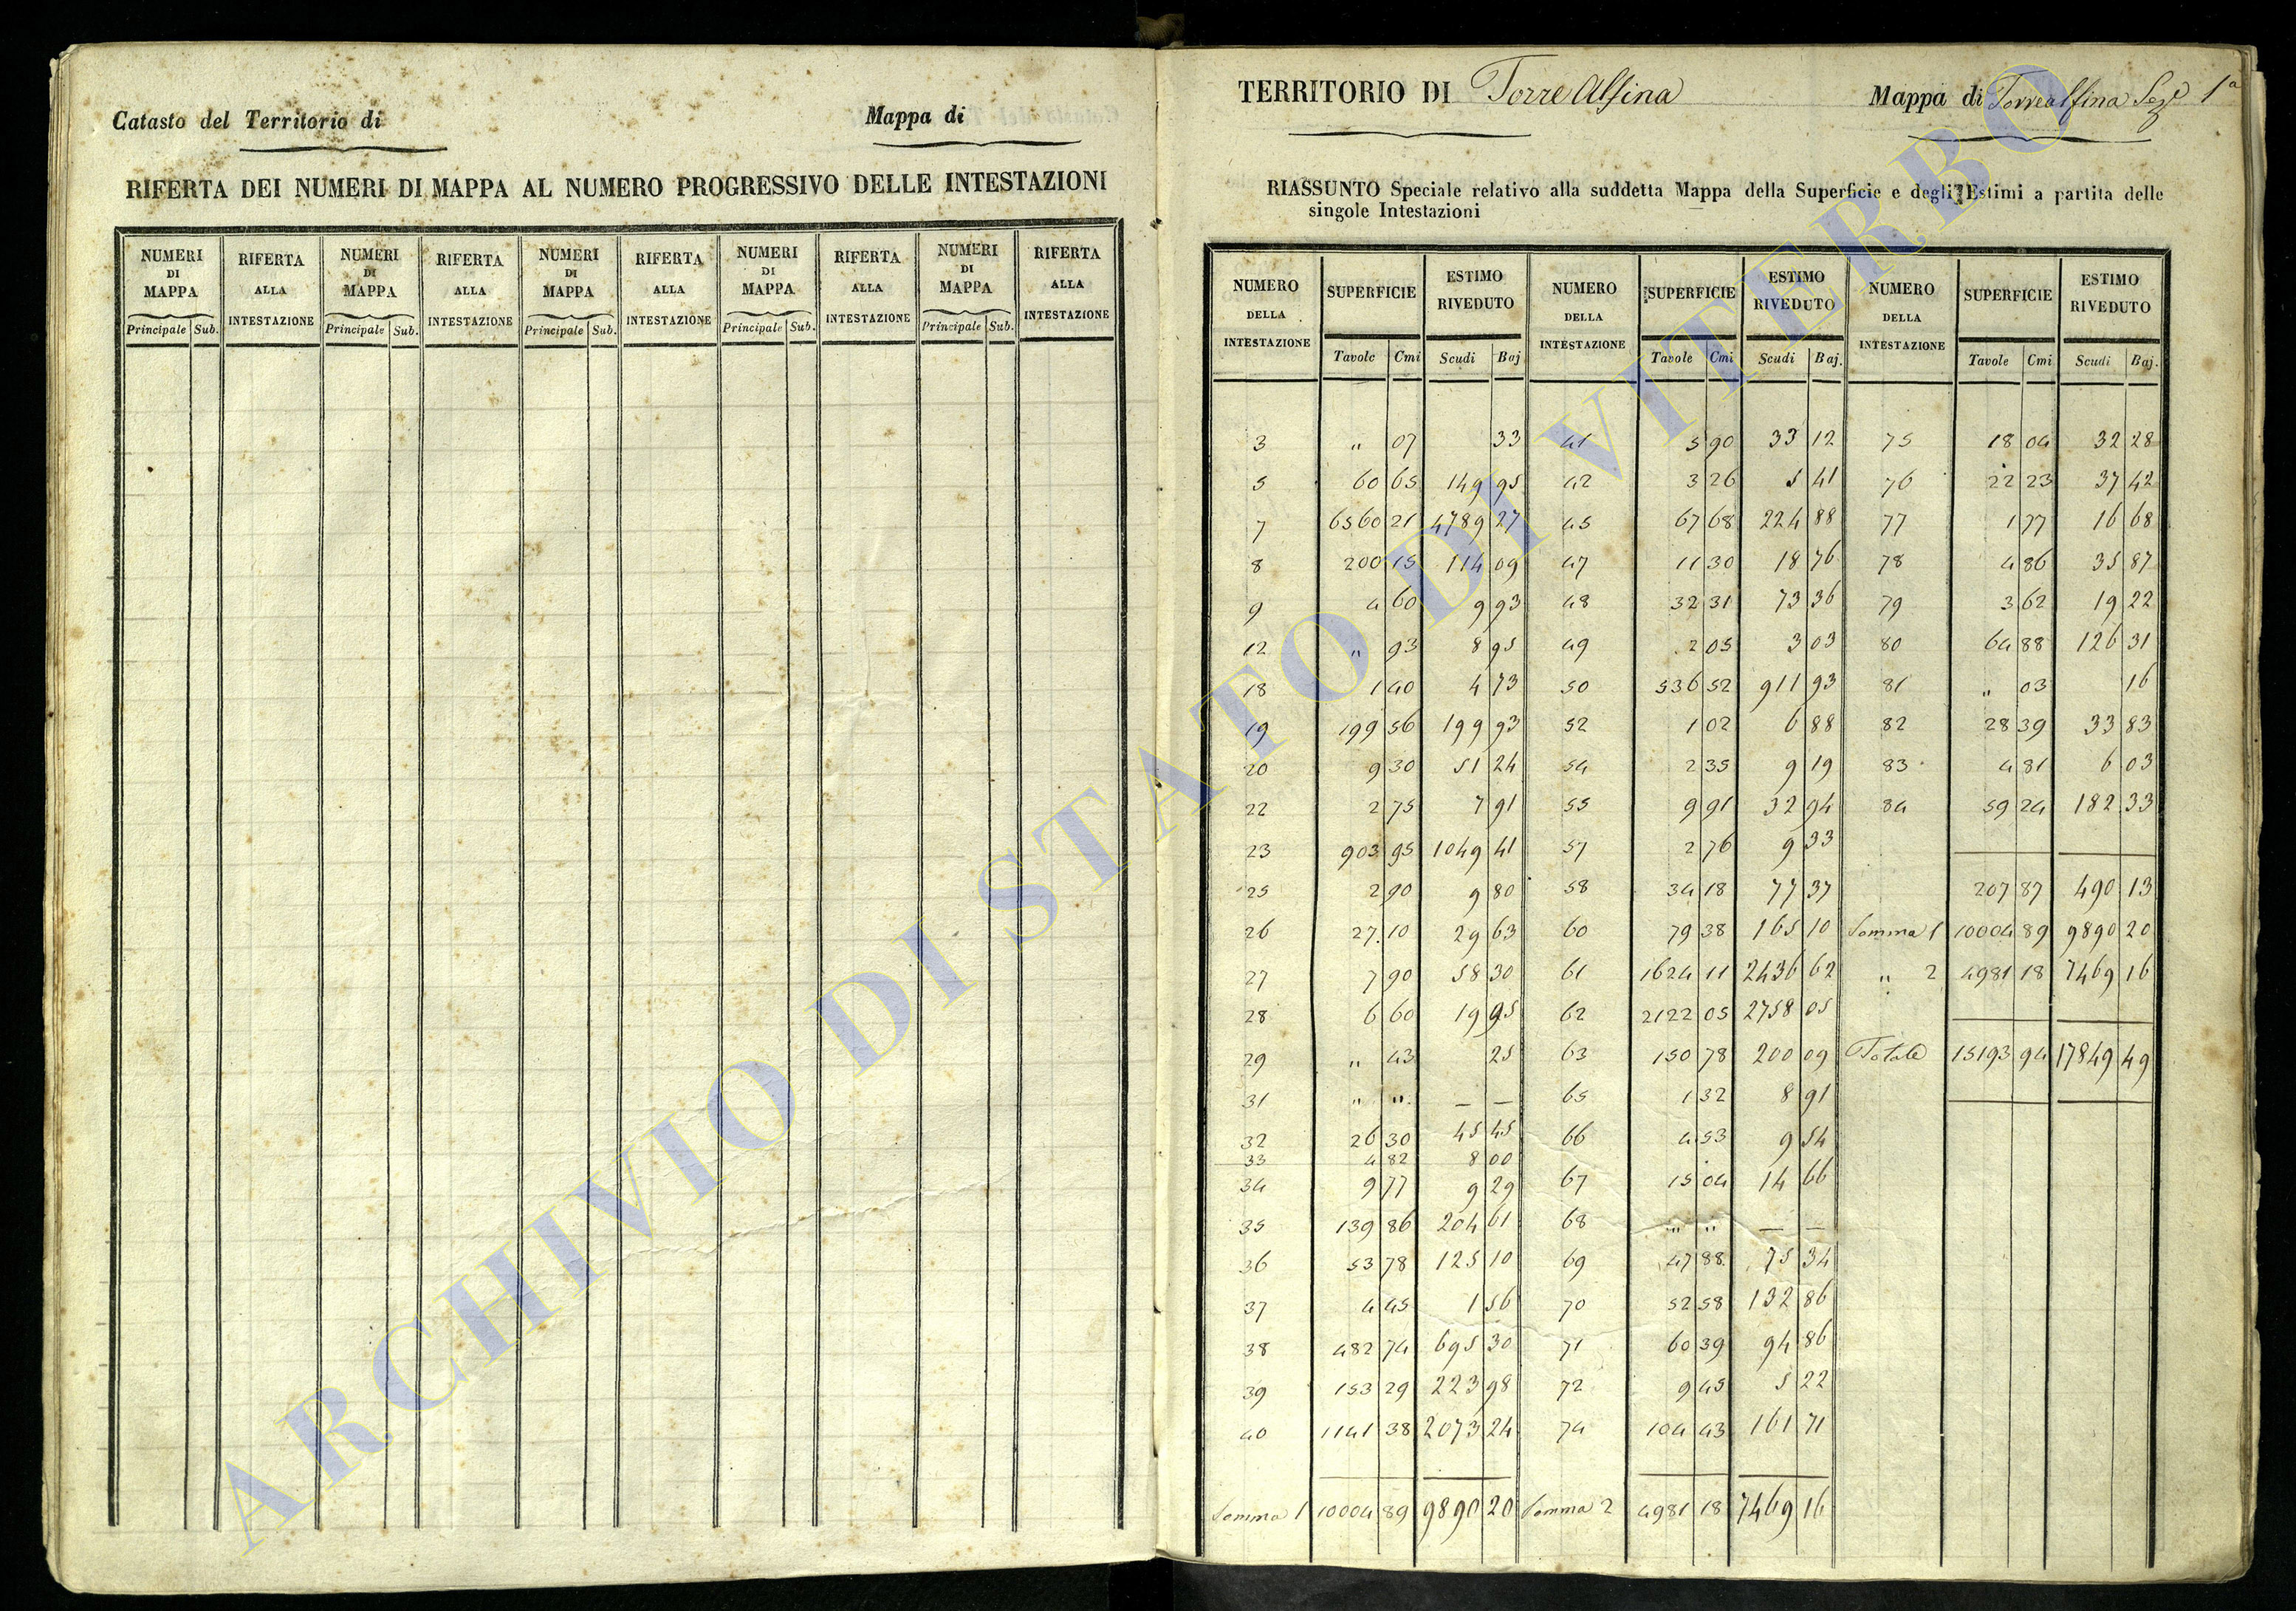 Catasto del Territorio di
Mappa di
RIFERTA DEI NUMERI DI MAPPA AL NUMERO PROGRESSIVO DELLE INTESTAZIONI
NUMERI DI MAPPA RIFERTA ALLA INTESTAZIONE NUMERI DI MAPPA RIFERTA ALLA INTESTAZIONE NUMERI DI MAPPA RIFERTA ALLA INTESTAZIONE NUMERI DI MAPPA RIFERTA ALLA INTESTAZIONE NUMERI DI MAPPA RIFERTA ALLA INTESTAZIONE
Principale Sub. Principale Sub. Principale Sub. Principale Sub. Principale Sub.
TERRITORIO DI Torre Alfina
Mappa di Torrealfina Sez.e 1a
RIASSUNTO Speciale relativo alla suddetta Mappa della Superficie e degli Estimi a partita delle
singole Intestazioni
NUMERO DELLA INTESTAZIONE SUPERFICIE ESTIMO RIVEDUTO NUMERO DELLA INTESTAZIONE SUPERFICIE ESTIMO RIVEDUTO NUMERO DELLA INTESTAZIONE SUPERFICIE ESTIMO RIVEDUTO
Tavole Cmi Scudi Baj. Tavole Cmi Scudi Baj. Tavole Cmi Scudi Baj.
3 " 07 33 41 5 90 33 12 75 18 04 32 28
5 60 65 149 95 42 3 26 5 41 76 22 23 37 42
7 6560 21 4789 27 45 67 68 224 88 77 1 77 16 68
8 200 15 114 09 47 11 30 18 76 78 4 86 35 87
9 4 60 9 93 48 32 31 73 36 79 3 62 19 22
12 " 93 8 95 49 2 05 3 03 80 64 88 126 31
18 1 40 4 73 50 536 52 911 93 81 " 03 16
19 199 56 199 93 52 1 02 6 88 82 28 39 33 83
20 9 30 51 24 54 2 35 9 19 83 4 81 6 03
22 2 75 7 91 55 9 91 32 94 84 59 24 182 33
23 903 95 1049 41 57 2 76 9 33
25 2 90 9 80 58 34 18 77 37 207 87 490 13
26 27 10 29 63 60 79 38 165 10 Somma 1 10004 89 9890 20
27 7 90 58 30 61 1624 11 2436 62 " 2 4981 18 7469 16
28 6 60 19 95 62 2122 05 2758 05
29 " 43 25 63 150 78 200 09 Totale 15193 94 17849 49
31 " " — — 65 1 32 8 91
32 26 30 45 45 66 4 53 9 54
33 4 82 8 00
34 9 77 9 29 67 15 04 14 66
35 139 86 204 61 68 " " — —
36 53 78 125 10 69 47 88 75 34
37 4 45 1 56 70 52 58 132 86
38 482 74 695 30 71 60 39 94 86
39 153 29 223 98 72 9 45 5 22
40 1141 38 2073 24 74 104 43 161 71
Somma 1 10004 89 9890 20 Somma 2 4981 18 7469 16
ARCHIVIO DI STATO DI VITERBO